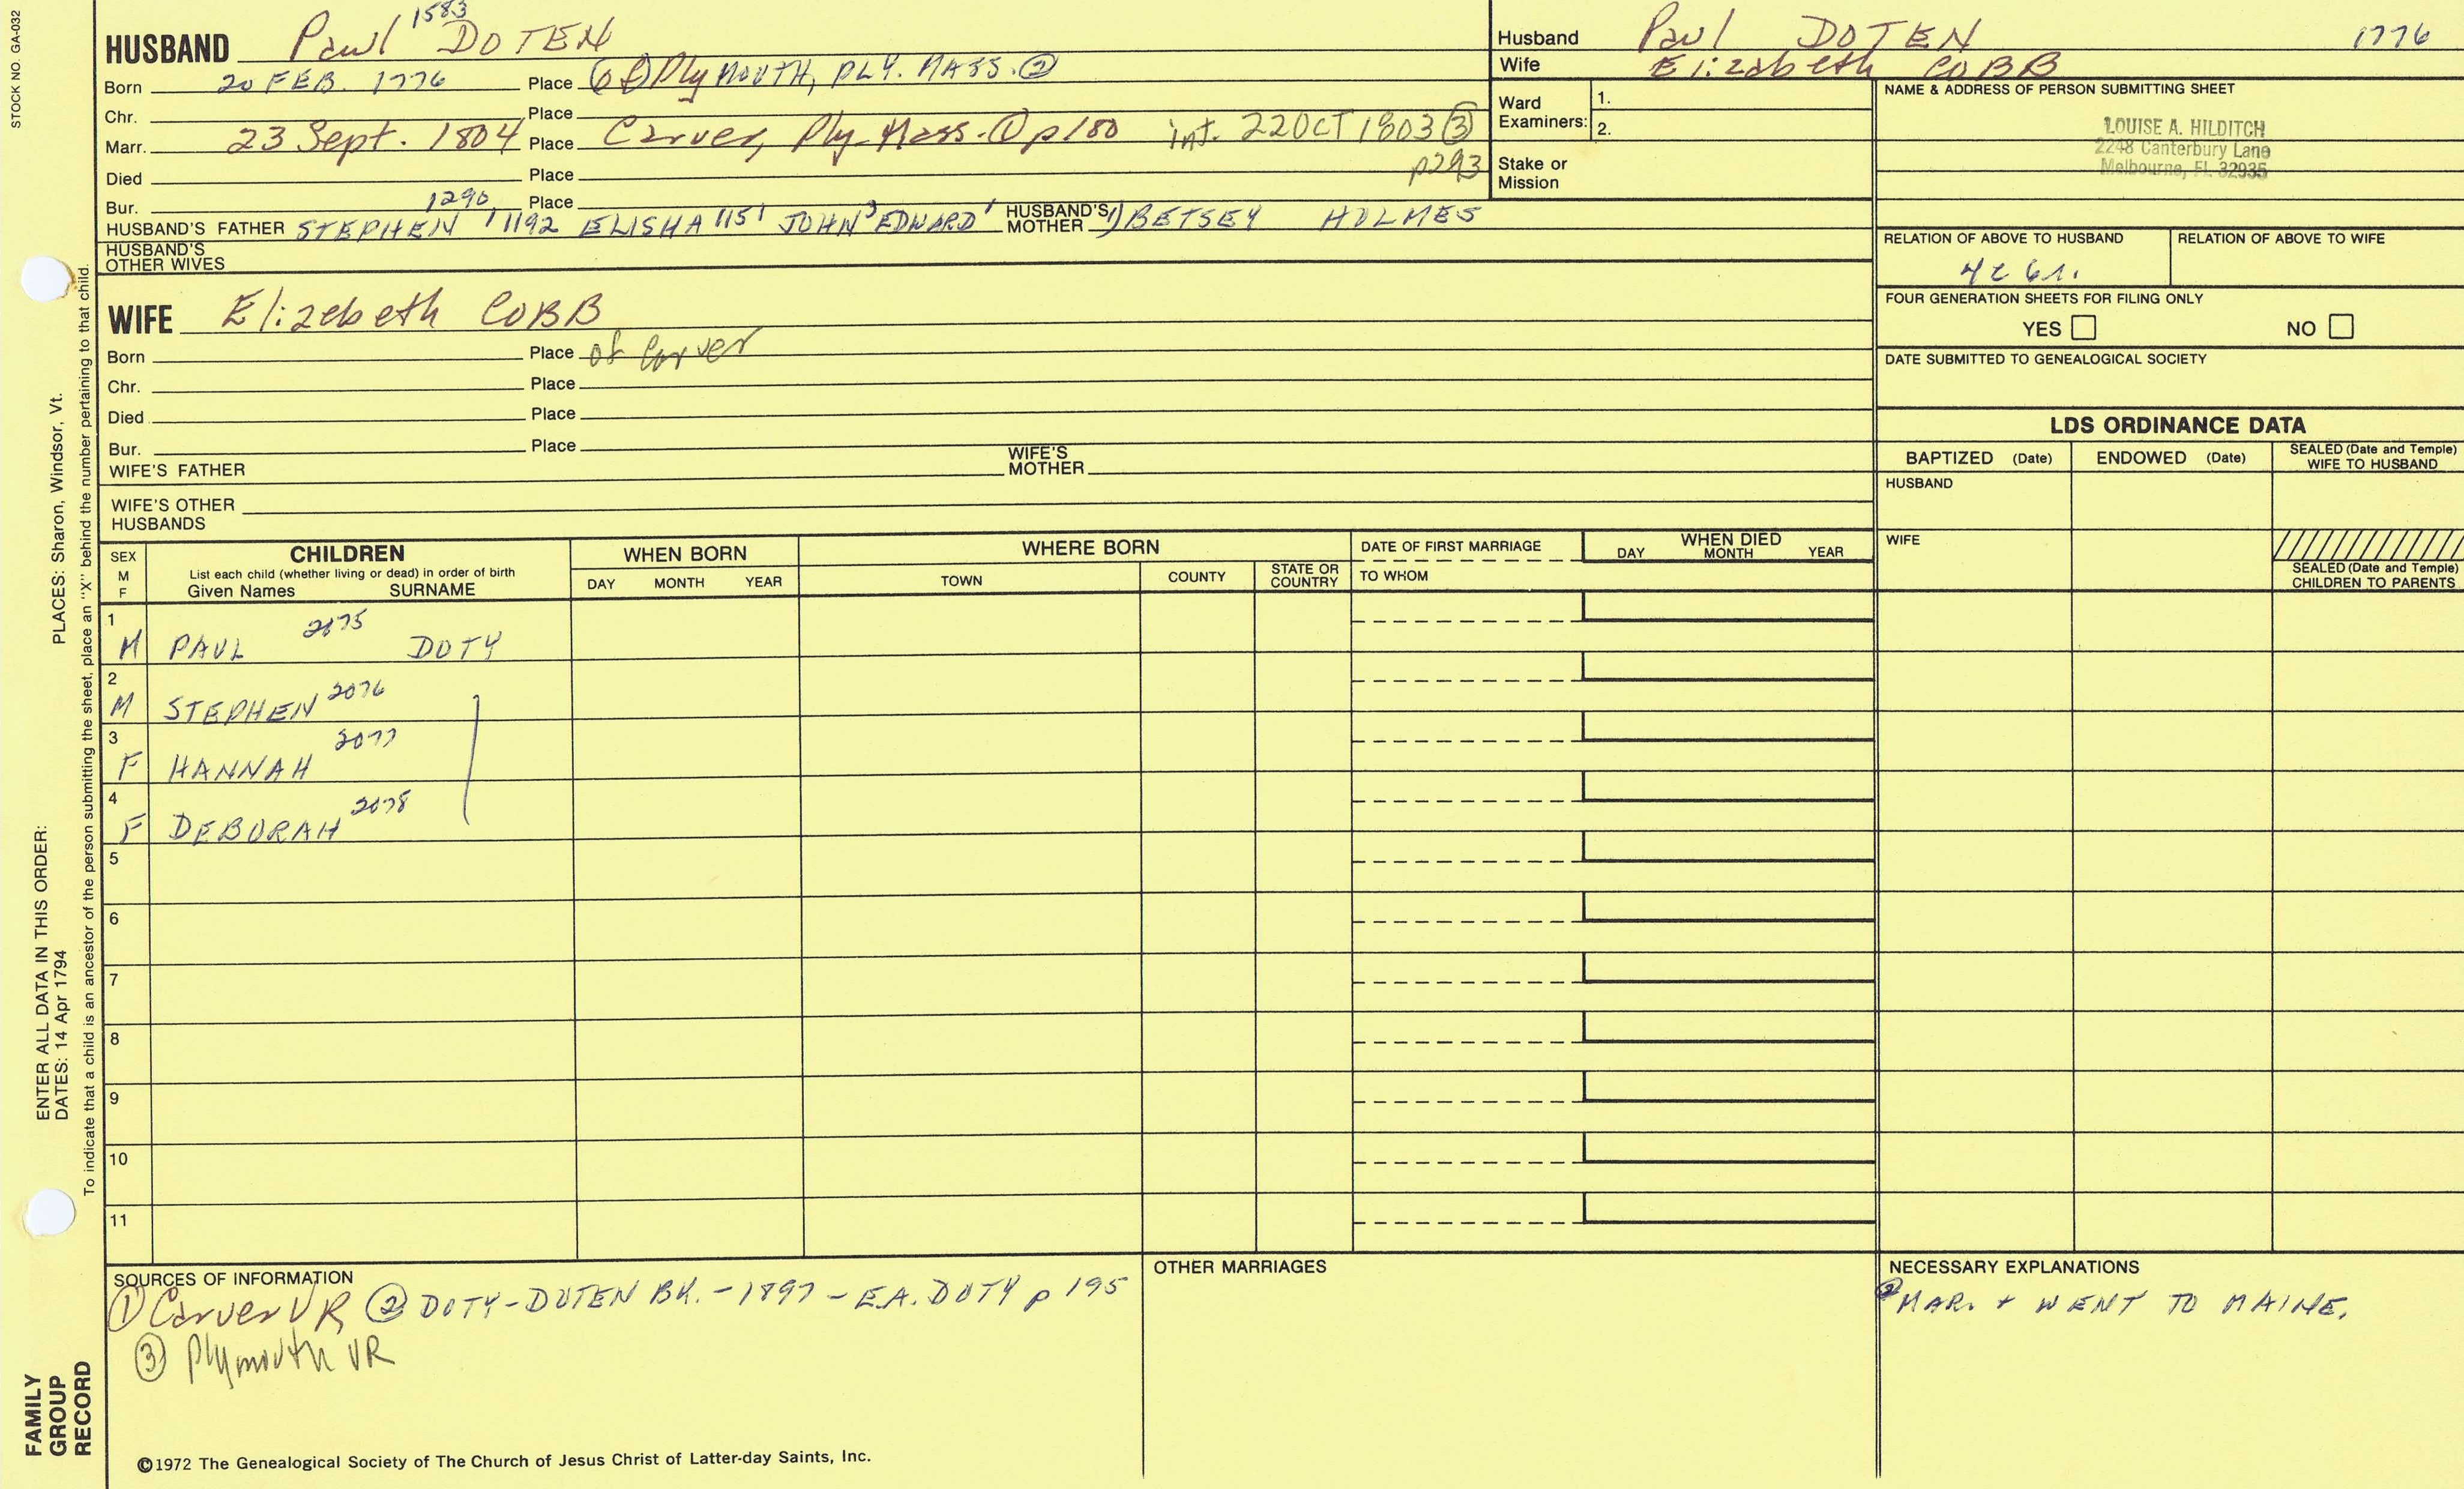 STOCK NO. GA-032
HUSBAND Paul 1583 DOTEN
Born 20 FEB. 1776 Place (of) Ply MOUTH, PLY. MASS. ②
Chr. Place
Marr. 23 Sept. 1804 Place Carver, Ply. Mass. ① p180 int. 22 OCT 1803 ③ p293
Died Place
Bur. Place
HUSBAND'S FATHER STEPHEN 1290 1192 ELISHA 1151 JOHN EDWARD HUSBAND'S MOTHER 1) BETSEY HOLMES
HUSBAND'S OTHER WIVES
WIFE Elizabeth COBB
Born Place of Carver
Chr. Place
Died Place
Bur. Place
WIFE'S FATHER WIFE'S MOTHER
WIFE'S OTHER HUSBANDS
Husband Paul DOTEN 1776
Wife Elizabeth COBB
Ward Examiners: 1.
2.
Stake or Mission
NAME & ADDRESS OF PERSON SUBMITTING SHEET
LOUISE A. HILDITCH
2248 Canterbury Lane
Melbourne, Fl. 32935
RELATION OF ABOVE TO HUSBAND RELATION OF ABOVE TO WIFE
FOUR GENERATION SHEETS FOR FILING ONLY
YES NO
DATE SUBMITTED TO GENEALOGICAL SOCIETY
LDS ORDINANCE DATA
BAPTIZED (Date) ENDOWED (Date) SEALED (Date and Temple) WIFE TO HUSBAND
HUSBAND
WIFE
SEALED (Date and Temple) CHILDREN TO PARENTS
SEX M F
CHILDREN
List each child (whether living or dead) in order of birth
Given Names SURNAME
WHEN BORN
DAY MONTH YEAR
WHERE BORN
TOWN COUNTY STATE OR COUNTRY
DATE OF FIRST MARRIAGE
TO WHOM
WHEN DIED
DAY MONTH YEAR
1 M PAUL 2075 DOTY
2 M STEPHEN 2076
3 F HANNAH 2077
4 F DEBORAH 2078
5
6
7
8
9
10
11
SOURCES OF INFORMATION
① Carver VR ② DOTY-DOTEN BK. - 1897 - E.A. DOTY p 195
③ Plymouth VR
OTHER MARRIAGES
NECESSARY EXPLANATIONS
② MAR. + WENT TO MAINE.
©1972 The Genealogical Society of The Church of Jesus Christ of Latter-day Saints, Inc.
FAMILY GROUP RECORD
ENTER ALL DATA IN THIS ORDER:
DATES: 14 Apr 1794
PLACES: Sharon, Windsor, Vt.
To indicate that a child is an ancestor of the person submitting the sheet, place an "X" behind the number pertaining to that child.